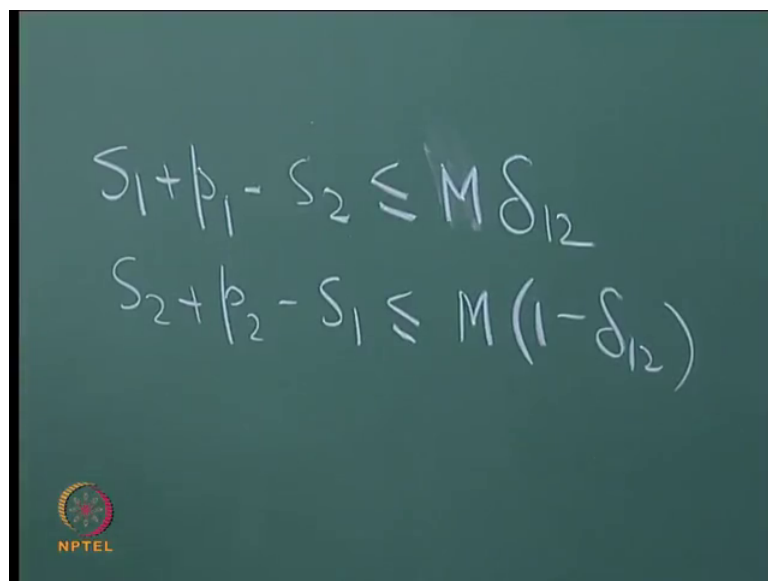 S₁ + p₁ - S₂ ≤ M δ₁₂
S₂ + p₂ - S₁ ≤ M (1 - δ₁₂)
NPTEL